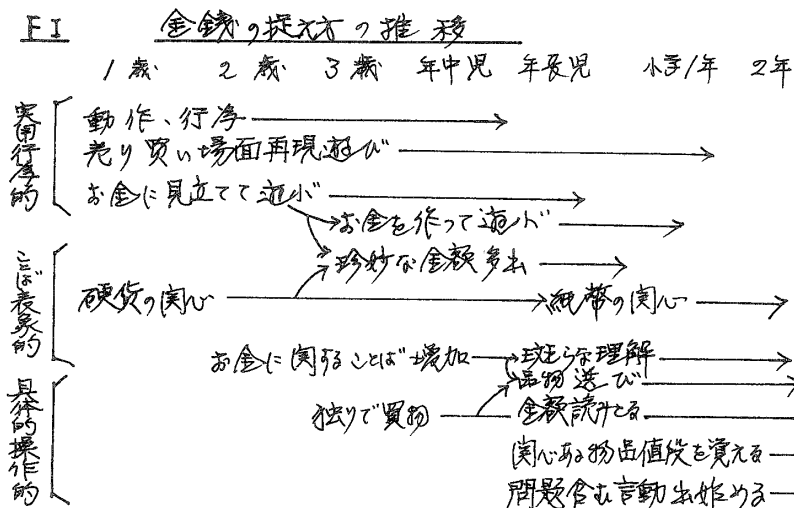 FI 金銭の捉え方の推移
1歳 2歳 3歳 年中児 年長児 小学1年 2年
実用行為的
動作、行為
売り買い場面再現遊び
お金に見立てて遊ぶ
お金を作って遊ぶ
珍妙な金額多出
ことば表象的
硬貨の関心 紙幣の関心
お金に関することば増加 斑らな理解
品物選び
具体的操作的
独りで買物 金額読みとる
関心ある物品値段を覚える
問題含む言動出始める